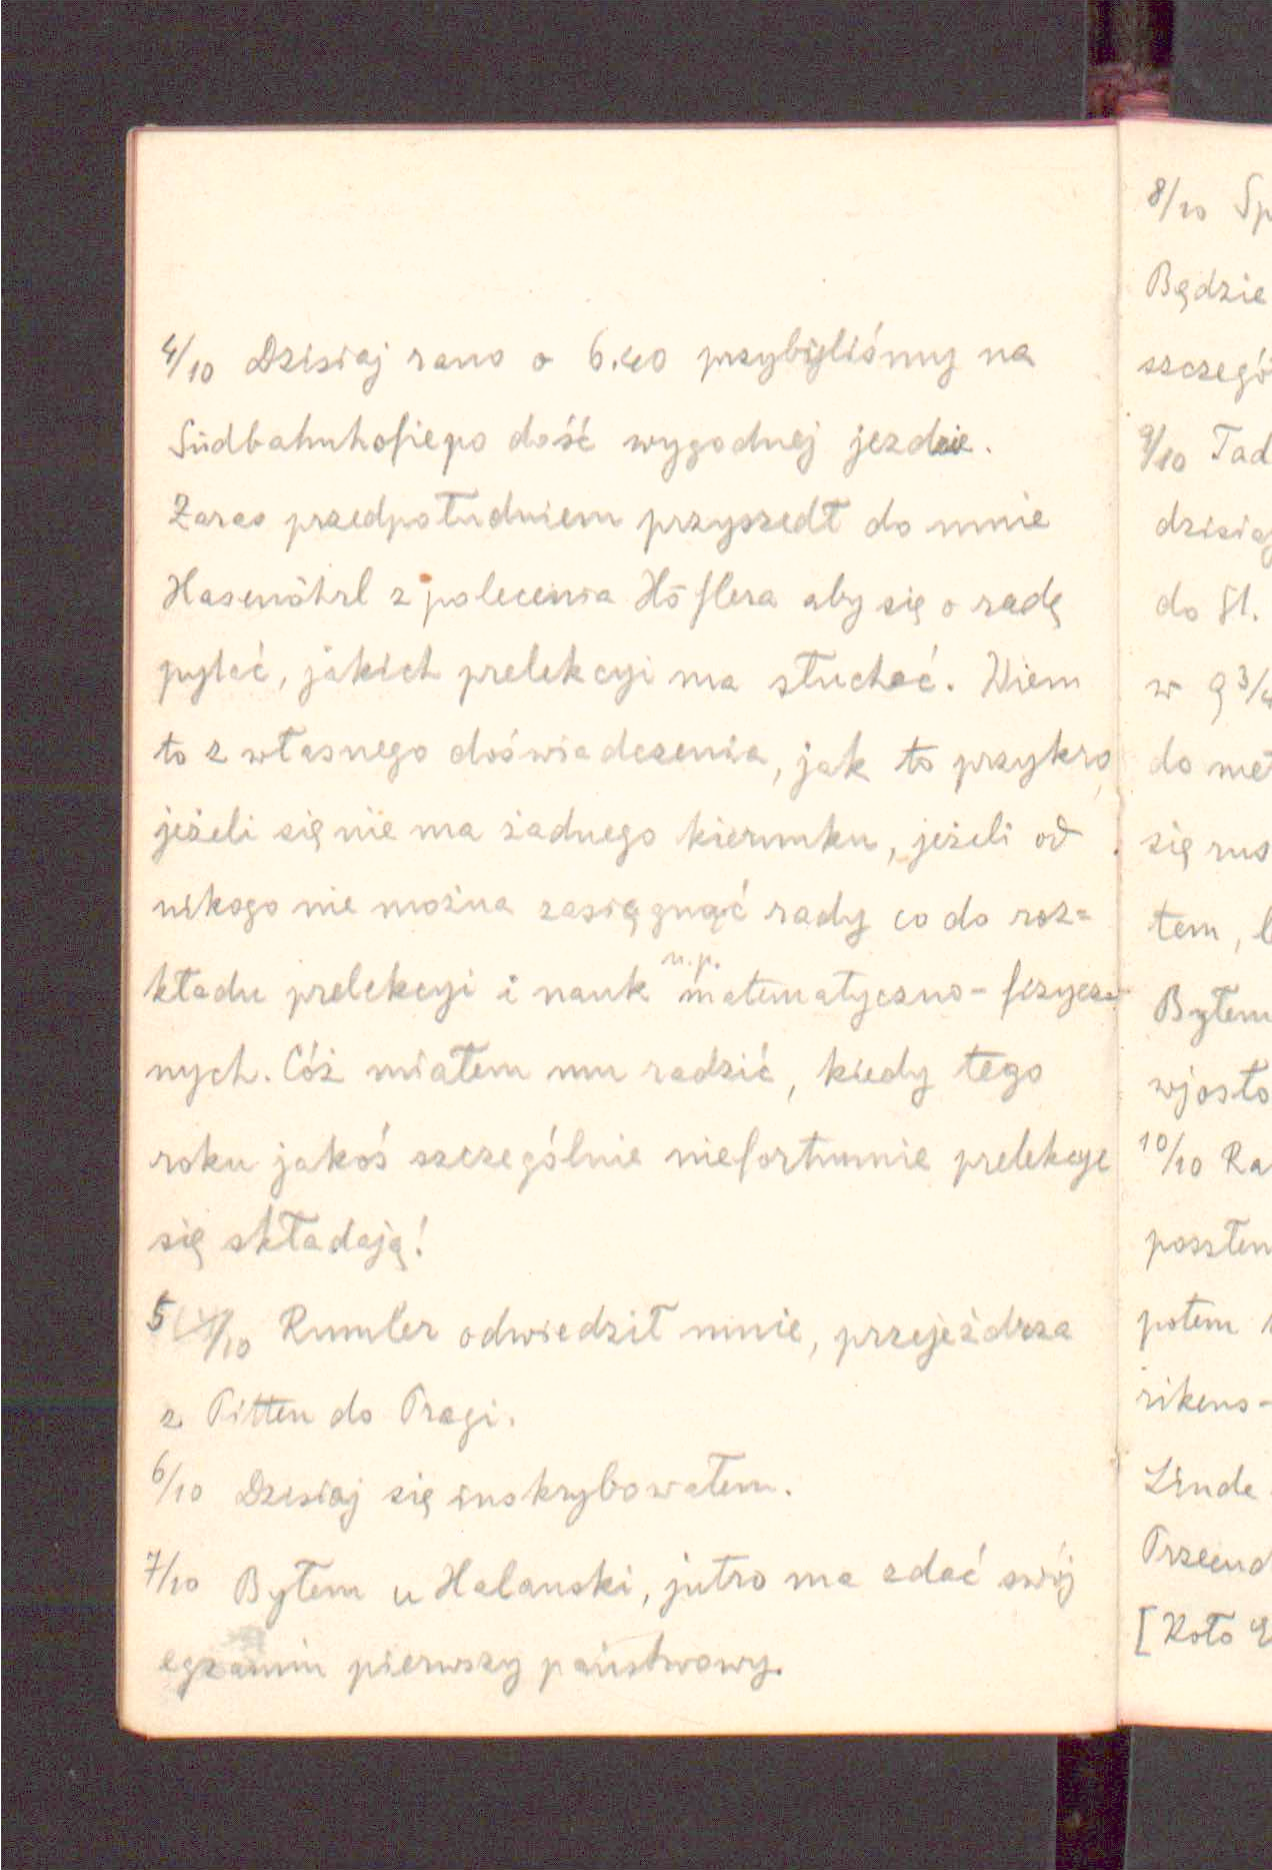 4/10 Dzisiaj rano o 6.40 przybyliśmy na
Südbahnhofie po dość wygodnej jezdzie.
Zaraz przedpołudniem przyszedł do mnie
Hasenöhrl z polecenia Höflera aby się o radę
pytać, jakich prelekcyi ma słuchać. Wiem
to z własnego doświadczenia, jak to przykro,
jeżeli się nie ma żadnego kierunku, jeżeli od
nikogo nie można zasięgnąć rady co do roz=
kładu prelekcyi i nauk n.p. matematyczno-fizycz=
nych. Cóż miałem mu radzić, kiedy tego
roku jakoś szczególnie niefortunnie prelekcje
się składają!
5/10 Rumler odwiedził mnie, przejeżdrza
z Pitten do Pragi.
6/10 Dzisiaj się inskrybowałem.
7/10 Byłem u Halanski, jutro ma zdać swój
egzamin pierwszy państwowy.
8/10 Sp
Będzie
szczegó
9/10 Tad
dzisiaj
do Fl.
w 9 3/4
do met
się rus
tem,
Byłem
wjosło
10/10 Ra
poszłem
potem
rikens-
Linde
Przeud
[Koło